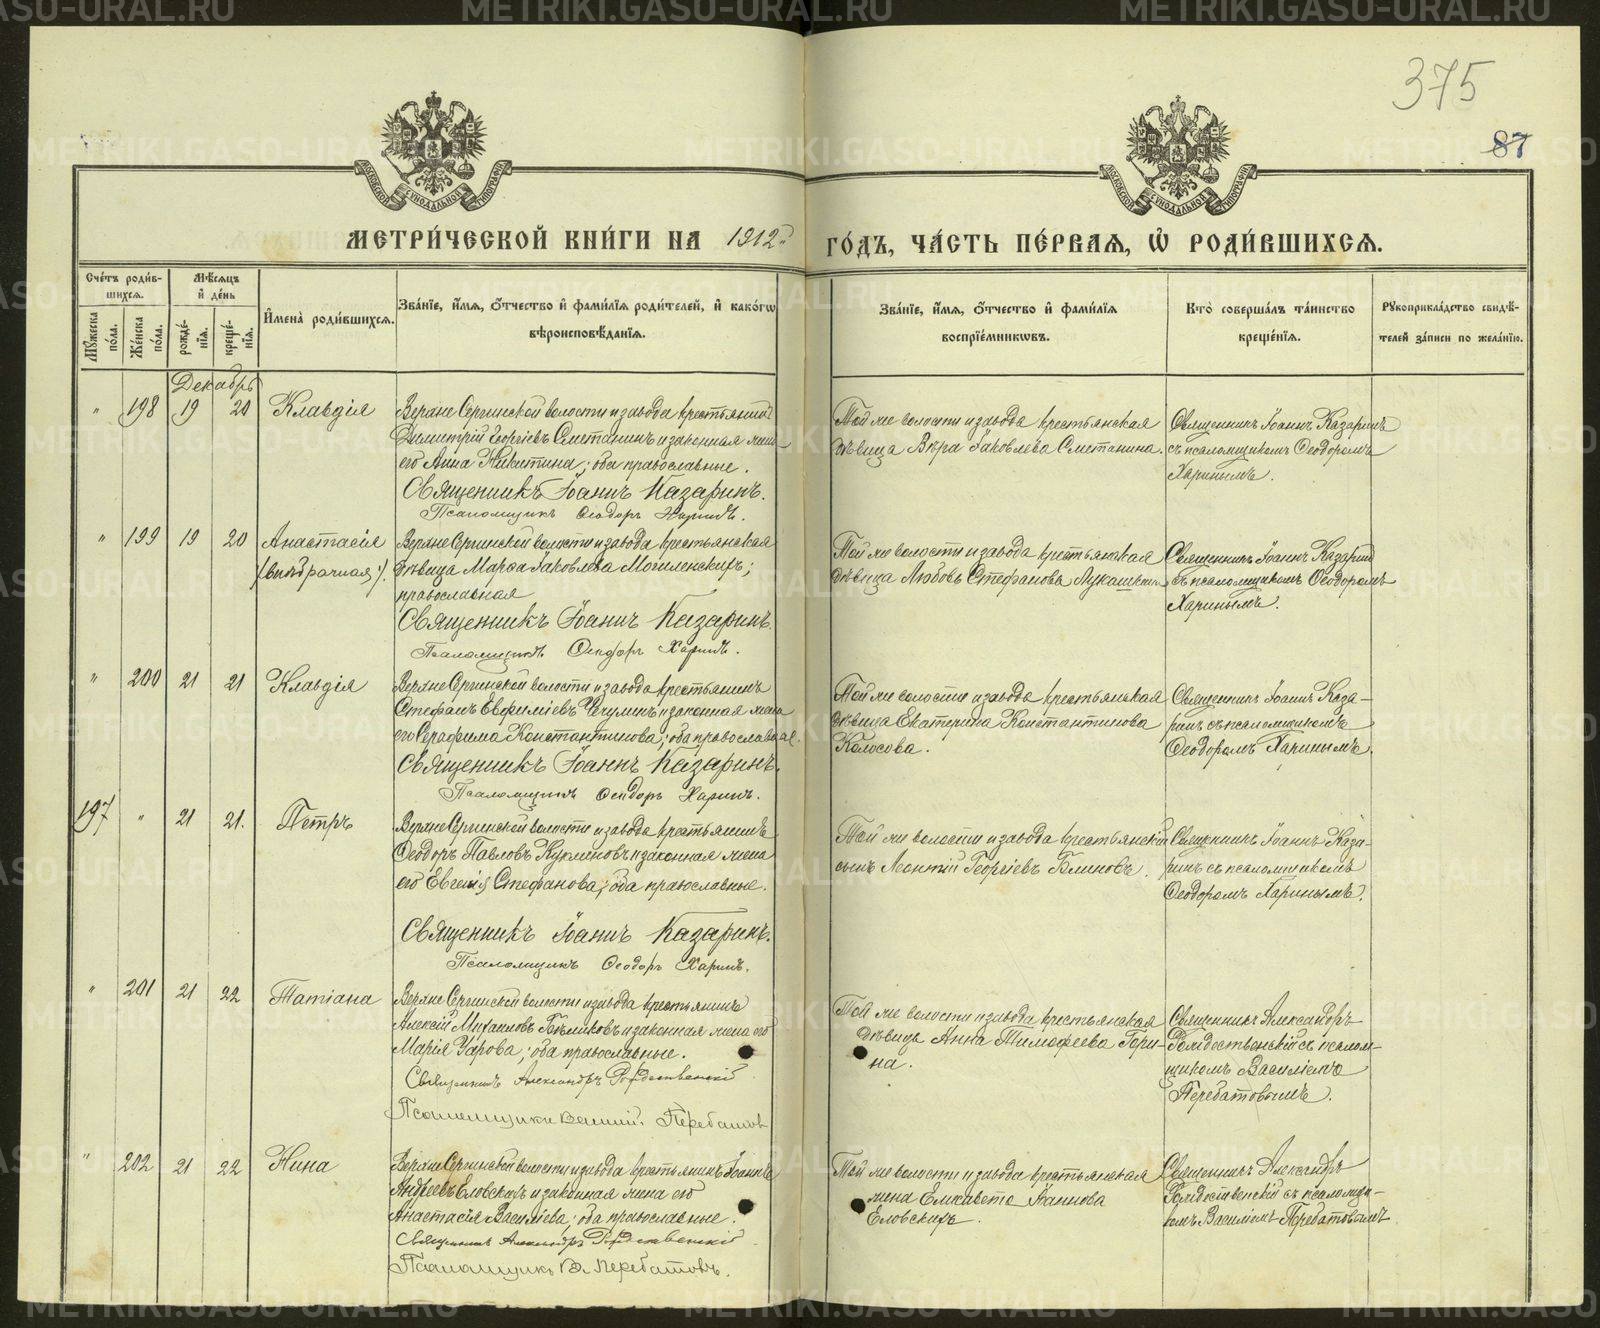 METRIKI.GASO-URAL.RU
375
87
МЕТРИ́ЧЕСКОЙ КНИ́ГИ НА 1912 г. ГО́ДЪ, ЧА́СТЬ ПЕ́РВАЯ, Ѿ РОДИ́ВШИХСЯ.
Сче́тъ роди́вшихся.
Му́жеска по́ла.
Же́нска по́ла.
Мѣ́сяцъ и де́нь
рожде́нія.
креще́нія.
И҆мена̀ роди́вшихся.
Зва́ніе, и҆́мя, ѻ҆́тчество и҆ фами́лїя роди́телей, и҆ како́гѡ вѣроисповѣ́данїя.
Зва́ніе, и҆́мя, ѻ҆́тчество и҆ фами́лїя воспрїе́мникѡвъ.
Кто̀ соверша́лъ та́инство креще́нїя.
Рукоприкла́дство свидѣ́телей за́писи по жела́нїю.
Декабрь
" 198 19 20 Клавдія
Верхне Сергинской волости и завода крестьянинъ
Димитрій Георгіевъ Сметанинъ и законная жена
его Анна Никитина; оба православные.
Священникъ Іоаннъ Казаринъ.
Псаломщикъ Ѳеодоръ Харинъ.
Той же волости и завода крестьянская
дѣвица Вѣра Іаковлева Сметанина.
Священникъ Іоаннъ Казаринъ
съ псаломщикомъ Ѳеодоромъ
Харинымъ.
" 199 19 20 Анастасія
(внѣбрачная).
Верхне Сергинской волости и завода крестьянская
дѣвица Марѳа Іаковлева Могиленскихъ;
православная
Священникъ Іоаннъ Казаринъ.
Псаломщикъ Ѳеодоръ Харинъ.
Той же волости и завода крестьянская
дѣвица Любовь Стефанова
Священникъ Іоаннъ Казаринъ
съ псаломщикомъ Ѳеодоромъ
Харинымъ.
" 200 21 21 Клавдія
Верхне Сергинской волости и завода крестьянинъ
Стефанъ Евфиміевъ Чечулинъ и законная жена
его Серафима Константинова; оба православные.
Священникъ Іоаннъ Казаринъ.
Псаломщикъ Ѳеодоръ Харинъ.
Той же волости и завода крестьянская
дѣвица Екатерина Константинова
Колосова.
Священникъ Іоаннъ Каза-
ринъ съ псаломщикомъ
Ѳеодоромъ Харинымъ.
197 " 21 21. Петръ
Верхне Сергинской волости и завода крестьянинъ
Ѳеодоръ Павловъ и законная жена
его Евгенія Стефанова; оба православные.
Священникъ Іоаннъ Казаринъ.
Псаломщикъ Ѳеодоръ Харинъ.
Той же волости и завода крестьянскій
сынъ Леонтій Георгіевъ Блиновъ.
Священникъ Іоаннъ Каза-
ринъ съ псаломщикомъ
Ѳеодоромъ Харинымъ.
" 201 21 22 Татіана
Верхне Сергинской волости и завода крестьянинъ
Алексій Михаиловъ и законная жена его
Марія Уарова; оба православные.
Священникъ Александръ Рождественскій
Псаломщикъ Василій Перебатовъ
Той же волости и завода крестьянская
дѣвица Анна Тимоѳеева Гори-
на.
Священникъ Александръ
Рождественскій съ псалом-
щикомъ Василіемъ
Перебатовымъ.
" 202 21 22 Нина
Верхне Сергинской волости и завода крестьянинъ Іоаннъ
Андреевъ Еловскихъ и законная жена его
Анастасія Василіева; оба православные.
Священникъ Александръ Рождественскій
Псаломщикъ В. Перебатовъ.
Той же волости и завода крестьянская
жена Елисавета Іоаннова
Еловскихъ.
Священникъ Александръ
Рождественскій съ псаломщи-
комъ Василіемъ Перебатовымъ.